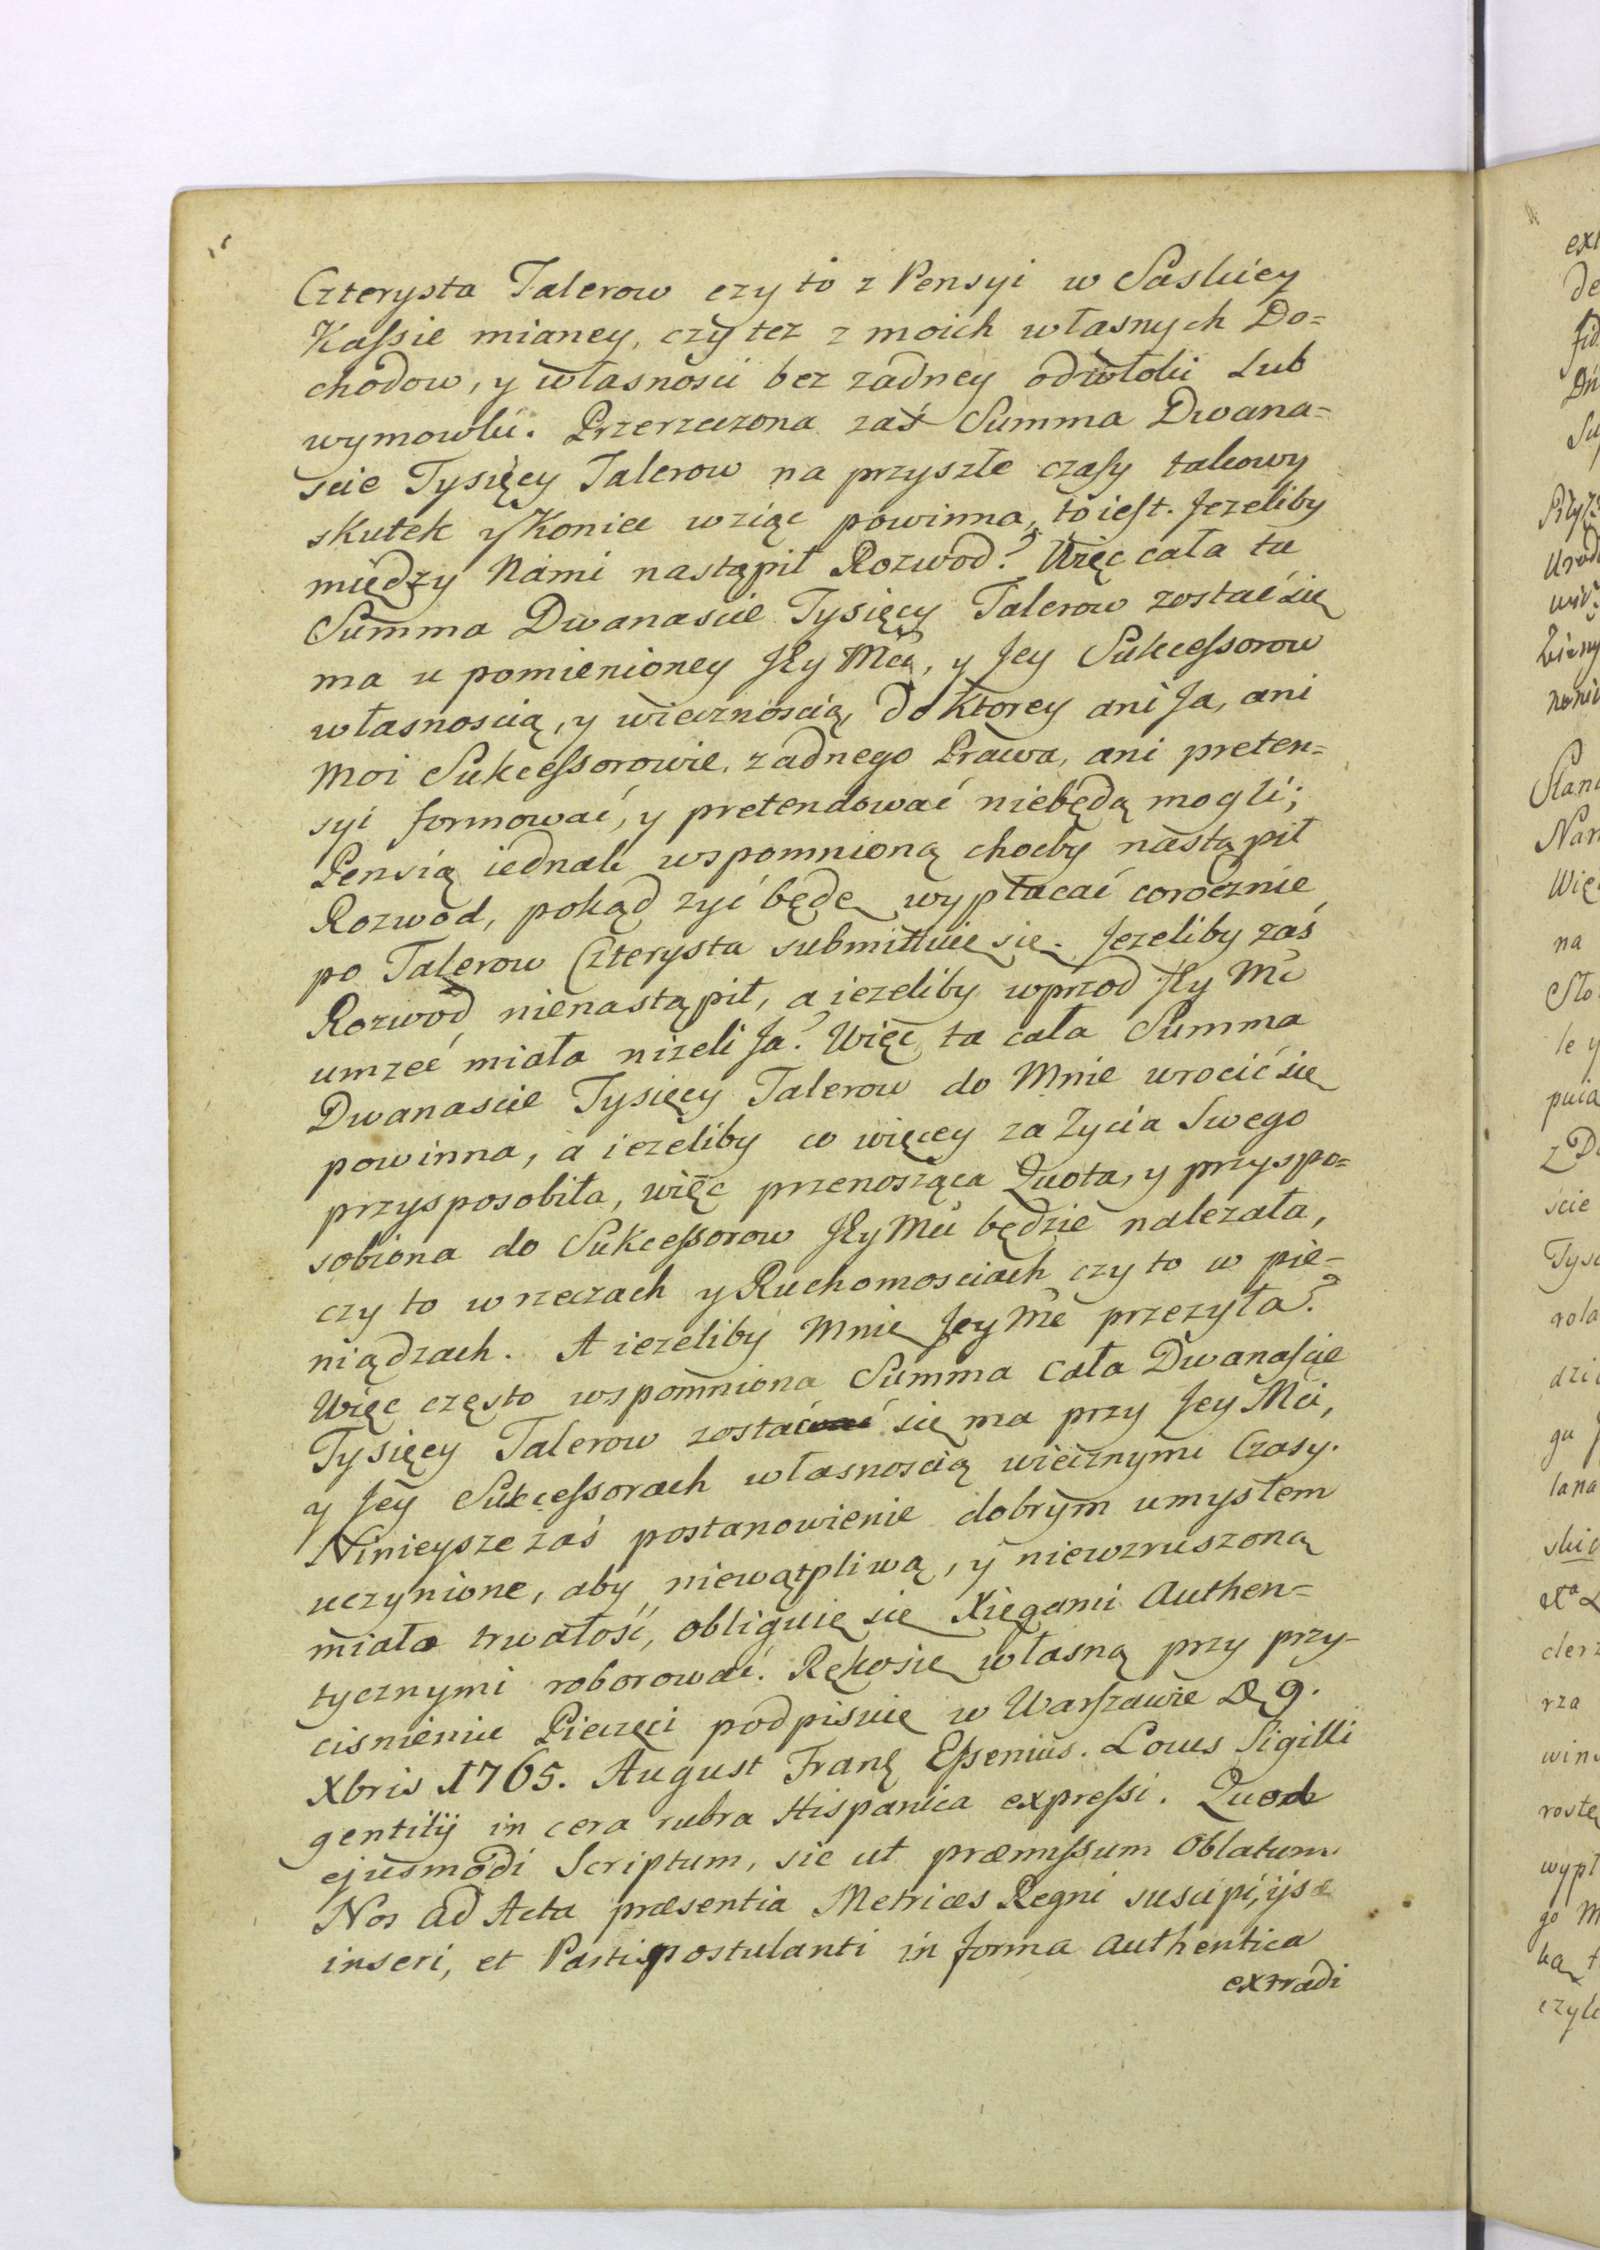 Czterysta Talerow czy to z Pensyi w Saskiey
Kaſsie mianey, czy tez z moich własnych Do=
chodow, y własnosci bez zadney odwłoki Lub
wymowki. Przerzeczona zaś Summa Dwana=
scie Tysięcy Talerow na przyszłe czaſy takowy
skutek y Koniec wziąc powinna, to ieſt. Jezeliby
między Nami nastąpił Rozwod? Więc cała ta
Summa Dwanascie Tysięcy Talerow zostać się
ma u pomienioney JEy Mci, y Jey Sukceſsorow
własnoscią, y wiecznoscią, do Ktorey ani Ja, ani
Moi Sukceſsorowie, zadnego Prawa, ani preten=
syi formować, y pretendować niebędą mogli;
Pensią iednak wspomnioną choćby nastąpił
Rozwod, pokąd zyć będę wypłacać corocznie
po Talerow Czterysta submittuię się. Jezeliby zaś
Rozwod nienastąpił, a iezeliby wprzod JEy Mć
umrzeć miała nizeli Ja? Więc ta cała Summa
Dwanascie Tysięcy Talerow do Mnie wrocić się
powinna, a iezeliby co więcey za Zycia Swego
przysposobiła, więc przenosząca Quota, y przyspo=
sobiona do Sukceſsorow JEy Mci będzie nalezała,
czy to w rzeczach y Ruchomosciach czy to w pie-
niądzach. A iezeliby Mnie Jey Mć przezyła?
Więc często wspomniona Summa cała Dwanaſcie
Tysięcy Talerow zostać się ma przy Jey Mci,
y Jey Sukceſsorach własnoscią wiecznymi Czasy.
Ninieysze zaś postanowienie dobrym umysłem
uczynione, aby niewątpliwą, y niewzruszoną
miało trwałość, obliguię się Xięgami Authen=
tycznymi roborować. Ręką się własną przy przy-
cisnieniu Pieczęci podpisuię w Warſzawie D 9.
Xbris 1765. August Franꝫ Eſsenius. Locus Sigilli
gentilij in cera rubra Hispanica expreſsi. Quod
ejusmodi Scriptum, sic ut præmiſsum Oblatum
Nos ad Acta præsentia Metrices Regni suscipi, ijsꝫ
inseri, et Parti postulanti in forma authentica
extradi